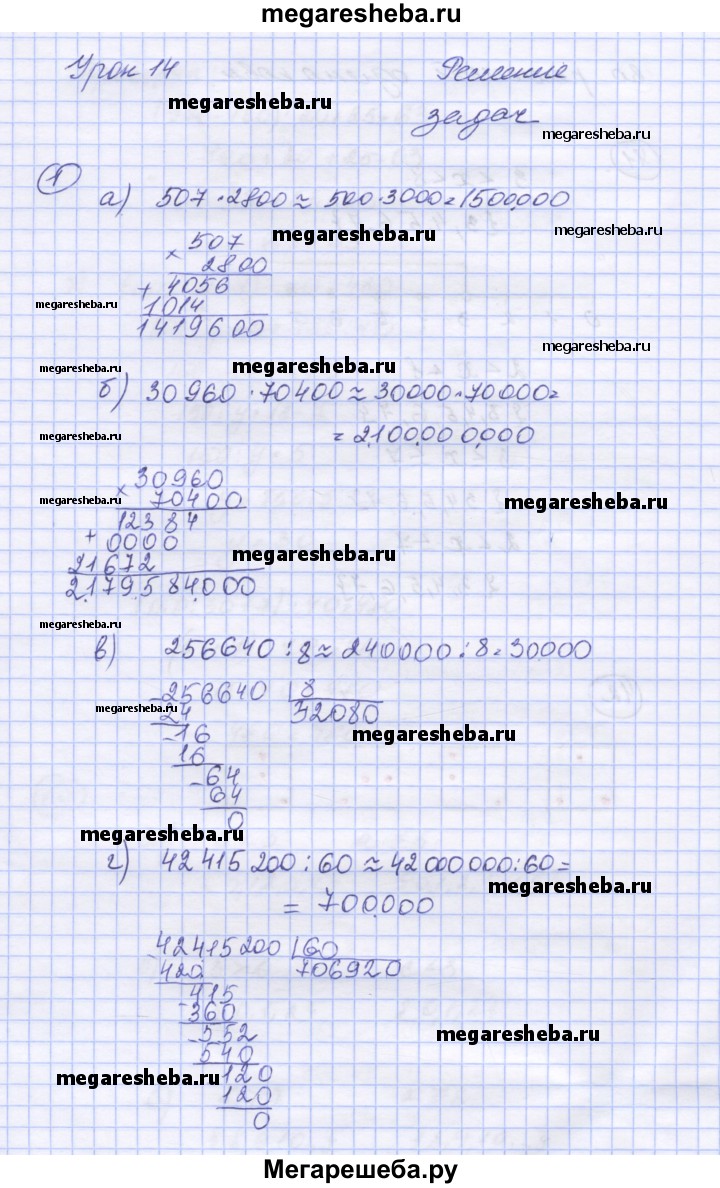 megaresheba.ru
Урок 14 Решение
megaresheba.ru
задач
megaresheba.ru
1
а) 507 · 2800 ≈ 500 · 3000 = 1500000
megaresheba.ru
megaresheba.ru
× 507
2800
+ 4056
megaresheba.ru
1014
1419600
megaresheba.ru
megaresheba.ru
б) 30960 · 70400 ≈ 30000 · 70000 =
megaresheba.ru
= 2100000000
× 30960
megaresheba.ru
70400
megaresheba.ru
12384
+ 0000
megaresheba.ru
21672
2179584000
megaresheba.ru
в) 256640 : 8 ≈ 240000 : 8 = 30000
- 256640 | 8
megaresheba.ru
24 32080
- 16
megaresheba.ru
16
- 64
64
0
megaresheba.ru
г) 42415200 : 60 ≈ 42000000 : 60 =
megaresheba.ru
= 700000
- 42415200 | 60
420 706920
- 415
360
- 552
megaresheba.ru
540
120
megaresheba.ru
120
0
Мегарешеба.ру